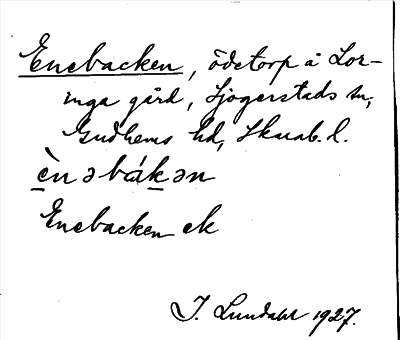 Enebacken, ödetorp å Lor-
inga gård, Sjogerstads sn,
Gudhems hd, Skarab. l.
ènəbák̲ən
Enebacken ek
I. Lundahl 1927.